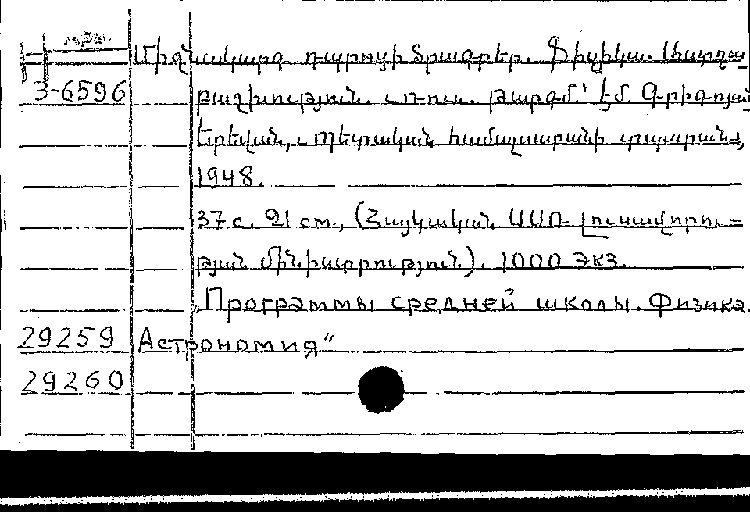 Միջնակարգ դպրոցի ծրագրեր. Ֆիզիկա. Աստղա-
3-6596 բաշխություն. Ռուս. թարգմ՝ Էմ. Գրիգորյան
Երևան, Պետական համալսարանի տպարան,
1948.
37 с. 21 см., (Հայկական ՍՍՌ Լուսավորու-
թյան մինիստրություն). 1000 экз.
„Программы средней школы. Физика.
29259 Астрономия“
29260